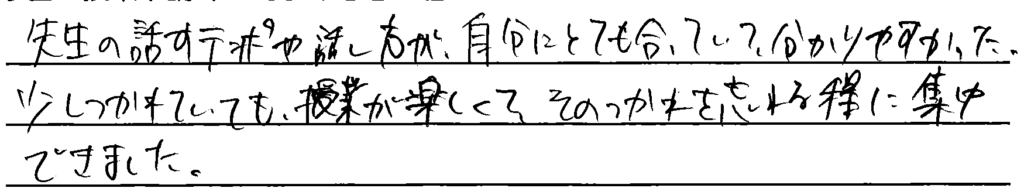 先生の話すテンポや話し方が、自分にとても合っていて、分かりやすかった。
少しつかれていても、授業が楽しくて、そのつかれを忘れる程に集中
できました。